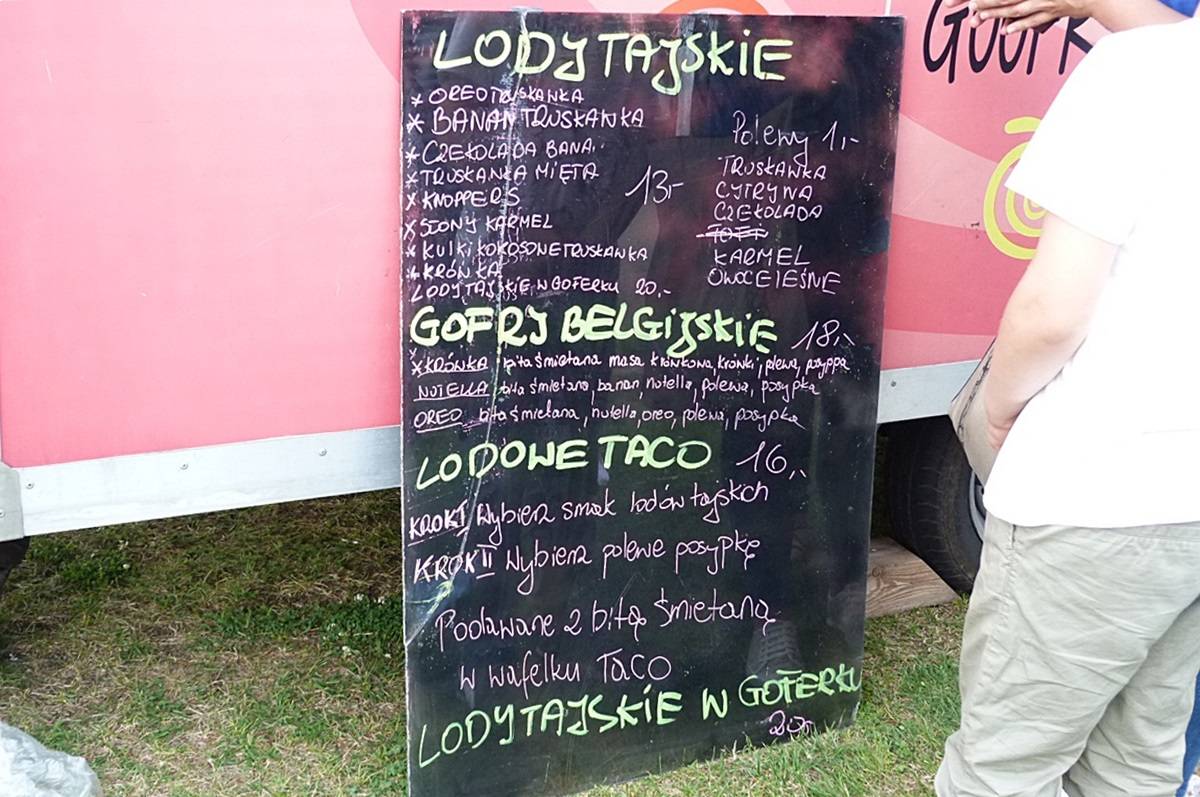 LODY TAJSKIE
* OREO TRUSKAWKA
* BANAN TRUSKAWKA
* CZEKOLADA BANA
* TRUSKAWKA MIĘTA
* KNOPPERS
* SŁONY KARMEL
* KULKI KOKOSOWE TRUSKAWKA
* KRÓWKA
13,-
Polewy 1,-
TRUSKAWKA
CYTRYNA
CZEKOLADA
KARMEL
OWOCE LEŚNE
LODY TAJSKIE W GOFERKU 20,-
GOFRY BELGIJSKIE 18,-
* KRÓWKA bita śmietana masa krówkowa, krówki, polewa, posyppa
NUTELLA bita śmietana, banan, nutella, polewa, posypka
OREO bita śmietana, nutella, oreo, polewa, posypka
LODOWE TACO 16,-
KROK I Wybierz smak lodów tajskich
KROK II Wybierz polewe posypkę
Podawane z bitą śmietaną
w wafelku TACO
LODY TAJSKIE W GOFERKU
20,-
GOOFR